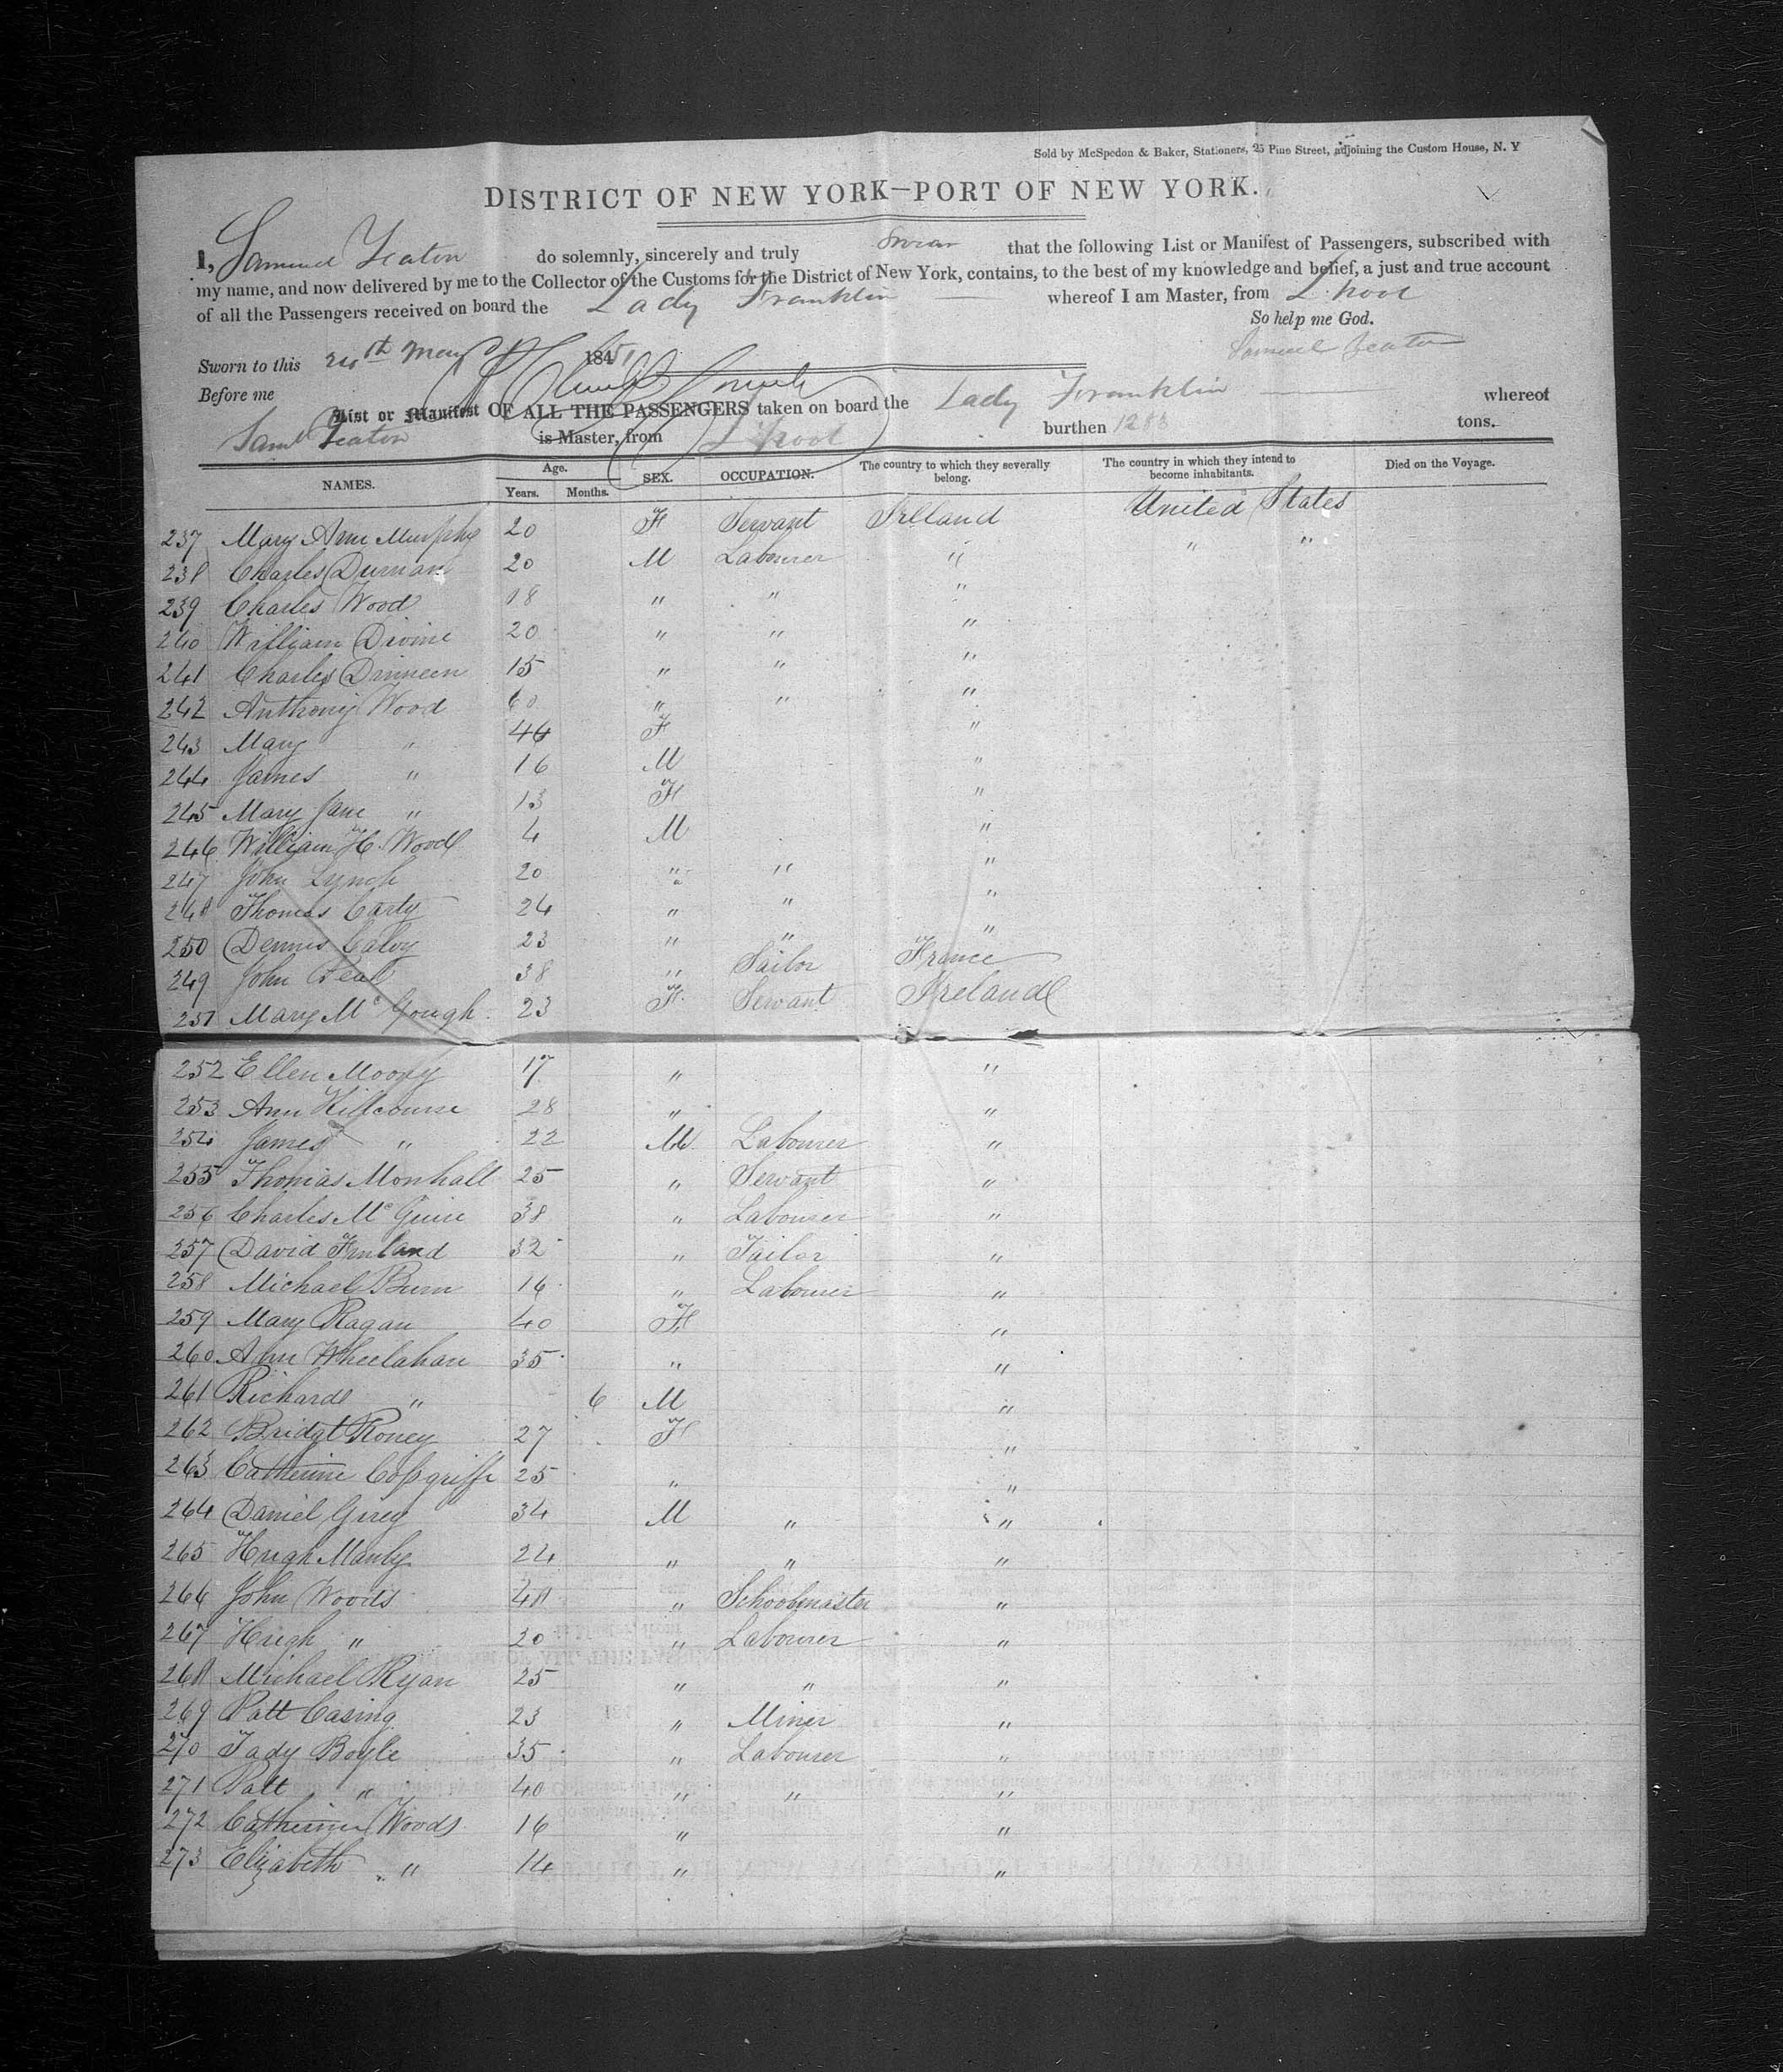 Sold by McSpedon & Baker, Stationers, 25 Pine Street, adjoining the Custom House, N. Y
DISTRICT OF NEW YORK—PORT OF NEW YORK.
I, Samuel Yeaton do solemnly, sincerely and truly Swear that the following List or Manifest of Passengers, subscribed with
my name, and now delivered by me to the Collector of the Customs for the District of New York, contains, to the best of my knowledge and belief, a just and true account
of all the Passengers received on board the Lady Franklin whereof I am Master, from L'pool
So help me God.
Sworn to this 24th May 1851 Samuel Yeaton
Before me
List or Manifest OF ALL THE PASSENGERS taken on board the Lady Franklin whereof
Saml Yeaton is Master, from L'pool burthen 1283 tons.
NAMES. Age. Years. Months. SEX. OCCUPATION. The country to which they severally belong. The country in which they intend to become inhabitants. Died on the Voyage.
237 Mary Ann Murphy 20 F Servant Irlland United States
238 Charles Durnan 20 M Labourer " " "
239 Charles Wood 18 " " "
240 William Divine 20 " " "
241 Charles Drinneen 15 " " "
242 Anthony Wood 60 " " "
243 Mary " 44 F "
244 James " 16 M "
245 Mary Jane " 13 F "
246 William H. Wood 4 M "
247 John Lynch 20 " " "
248 Thomas Carty 24 " " "
250 Dennis Calvy 23 " " "
249 John 38 " Tailor France
251 Mary McGough 23 F Servant Ireland
252 Ellen Moory 17 " "
253 Ann Killcourse 28 " "
254 James " 22 M Labourer "
255 Thomas Monhall 25 " Servant "
256 Charles McGuire 38 " Labourer "
257 David Finland 32 " Tailor "
258 Michael Burn 16 " Labourer "
259 Mary Ragan 40 F "
260 Ann Wheelahan 35 " "
261 Richard " 6 M "
262 Bridgt Roney 27 F "
263 Catherine Cossgriffe 25 " "
264 Daniel Girey 34 M " "
265 Hugh Manly 24 " " "
266 John Woods 48 " Schoolmaster "
267 Hugh " 20 " Labourer "
268 Michael Ryan 25 " " "
269 Patt Casing 23 " Miner "
270 Tady Boyle 35 " Labourer "
271 Patt " 40 " " "
272 Catherine Woods 16 " "
273 Elizabeth " 14 " "